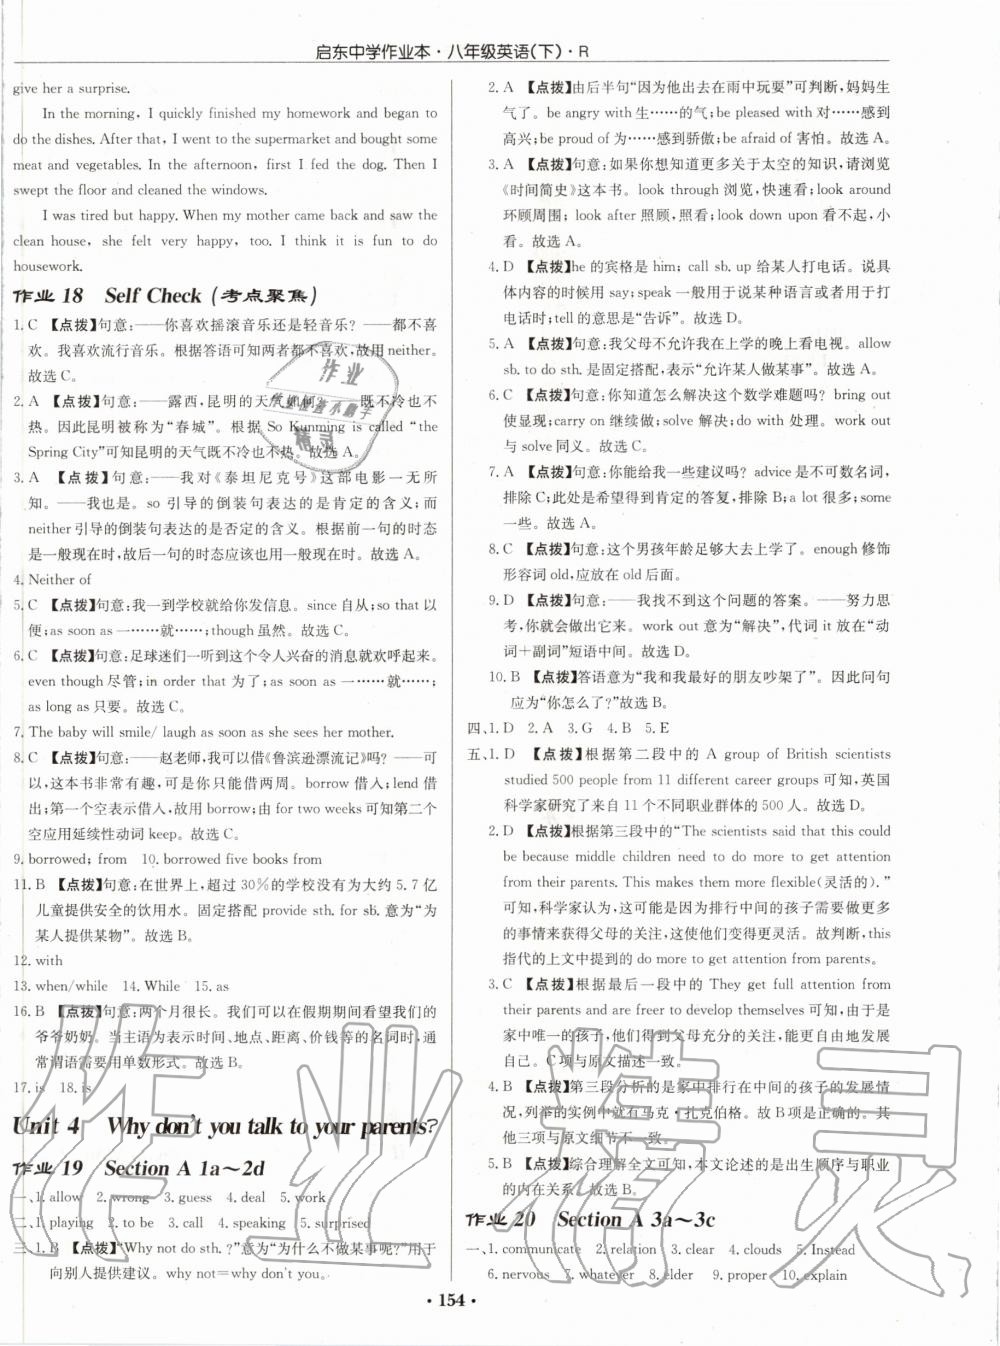 启东中学作业本·八年级英语(下)·R
give her a surprise.
In the morning, I quickly finished my homework and began to
do the dishes. After that, I went to the supermarket and bought some
meat and vegetables. In the afternoon, first I fed the dog. Then I
swept the floor and cleaned the windows.
I was tired but happy. When my mother came back and saw the
clean house, she felt very happy, too. I think it is fun to do
housework.
作业 18 Self Check (考点聚焦)
1. C 【点拨】句意:——你喜欢摇滚音乐还是轻音乐? ——都不喜
欢。我喜欢流行音乐。根据答语可知两者都不喜欢,故用 neither。
故选 C。
2. A 【点拨】句意:——露西,昆明的天气如何? ——既不冷也不
热。因此昆明被称为“春城”。根据 So Kunming is called “the
Spring City”可知昆明的天气既不冷也不热。故选 A。
3. A 【点拨】句意:——我对《泰坦尼克号》这部电影一无所
知。——我也是。so 引导的倒装句表达的是肯定的含义。而
neither 引导的倒装句表达的是否定的含义。根据前一句的时态
是一般现在时,故后一句的时态应该也用一般现在时。故选 A。
4. Neither of
5. C 【点拨】句意:我一到学校就给你发信息。since 自从;so that 以
便;as soon as 一……就……;though 虽然。故选 C。
6. C 【点拨】句意:足球迷们一听到这个令人兴奋的消息就欢呼起来。
even though 尽管;in order that 为了;as soon as 一……就……;
as long as 只要。故选 C。
7. The baby will smile/ laugh as soon as she sees her mother.
8. C 【点拨】句意:——赵老师,我可以借《鲁滨逊漂流记》吗? ——可
以,这本书非常有趣,可是你只能借两周。borrow 借入;lend 借
出;第一个空表示借入,故用 borrow;由 for two weeks 可知第二个
空应用延续性动词 keep。故选 C。
9. borrowed; from 10. borrowed five books from
11. B 【点拨】句意:在世界上,超过 30%的学校没有为大约 5. 7 亿
儿童提供安全的饮用水。固定搭配 provide sth. for sb. 意为“为
某人提供某物”。故选 B。
12. with
13. when/while 14. While 15. as
16. B 【点拨】句意:两个月很长。我们可以在假期期间看望我们的
爷爷奶奶。当主语为表示时间、地点、距离、价钱等的名词时,谓
常谓语需要用单数形式。故选 B。
17. is 18. is
Unit 4 Why don't you talk to your parents?
作业 19 Section A 1a~2d
一、1. allow 2. wrong 3. guess 4. deal 5. work
二、1. playing 2. to be 3. call 4. speaking 5. surprised
三、1. B 【点拨】“Why not do sth. ?”意为“为什么不做某事呢?”用于
向别人提供建议。why not=why don't you。
2. A 【点拨】由后半句“因为他出去在雨中玩耍”可判断,妈妈生
气了。be angry with 生……的气;be pleased with 对……感到
高兴;be proud of 为……感到骄傲;be afraid of 害怕。故选 A。
3. A 【点拨】句意:如果你想知道更多关于太空的知识,请浏览
《时间简史》这本书。look through 浏览,快速看;look around
环顾周围;look after 照顾,照看;look down upon 看不起,小
看。故选 A。
4. D 【点拨】he 的宾格是 him;call sb. up 给某人打电话。说具
体内容的时候用 say;speak 一般用于说某种语言或者用于打
电话时;tell 的意思是“告诉”。故选 D。
5. A 【点拨】句意:我父母不允许我在上学的晚上看电视。allow
sb. to do sth. 是固定搭配,表示“允许某人做某事”。故选 A。
6. C 【点拨】句意:你知道怎么解决这个数学难题吗? bring out
使显现;carry on 继续做;solve 解决;do with 处理。work out
与 solve 同义。故选 C。
7. A 【点拨】句意:你能给我一些建议吗? advice 是不可数名词,
排除 C;此处是希望得到肯定的答复,排除 B;a lot 很多;some
一些。故选 A。
8. C 【点拨】句意:这个男孩年龄足够大去上学了。enough 修饰
形容词 old,应放在 old 后面。
9. D 【点拨】句意:——我找不到这个问题的答案。——努力思
考,你就会做出它来。work out 意为“解决”,代词 it 放在“动
词+副词”短语中间。故选 D。
10. B 【点拨】答语意为“我和我最好的朋友吵架了”。因此问句
应为“你怎么了?”故选 B。
四、1. D 2. A 3. G 4. B 5. E
五、1. D 【点拨】根据第二段中的 A group of British scientists
studied 500 people from 11 different career groups 可知,英国
科学家研究了来自 11 个不同职业群体的 500 人。故选 D。
2. D 【点拨】根据第三段中的“The scientists said that this could
be because middle children need to do more to get attention
from their parents. This makes them more flexible(灵活的). ”
可知,科学家认为,这可能是因为排行中间的孩子需要做更多
的事情来获得父母的关注,这使他们变得更灵活。故判断,this
指代的上文中提到的 do more to get attention from parents。
3. C 【点拨】根据最后一段中的 They get full attention from
their parents and are freer to develop themselves 可知,由于是
家中唯一的孩子,他们得到父母充分的关注,能更自由地发展
自己。C 项与原文描述一致。
4. B 【点拨】第三段分析的是家中排行在中间的孩子的发展情
况,列举的实例中就有马克·扎克伯格。故 B 项是正确的。其
他三项与原文细节不一致。
5. B 【点拨】综合理解全文可知,本文论述的是出生顺序与职业
的内在关系。故选 B。
作业 20 Section A 3a~3c
一、1. communicate 2. relation 3. clear 4. clouds 5. Instead
6. nervous 7. whatever 8. elder 9. proper 10. explain
· 154 ·
作业精灵